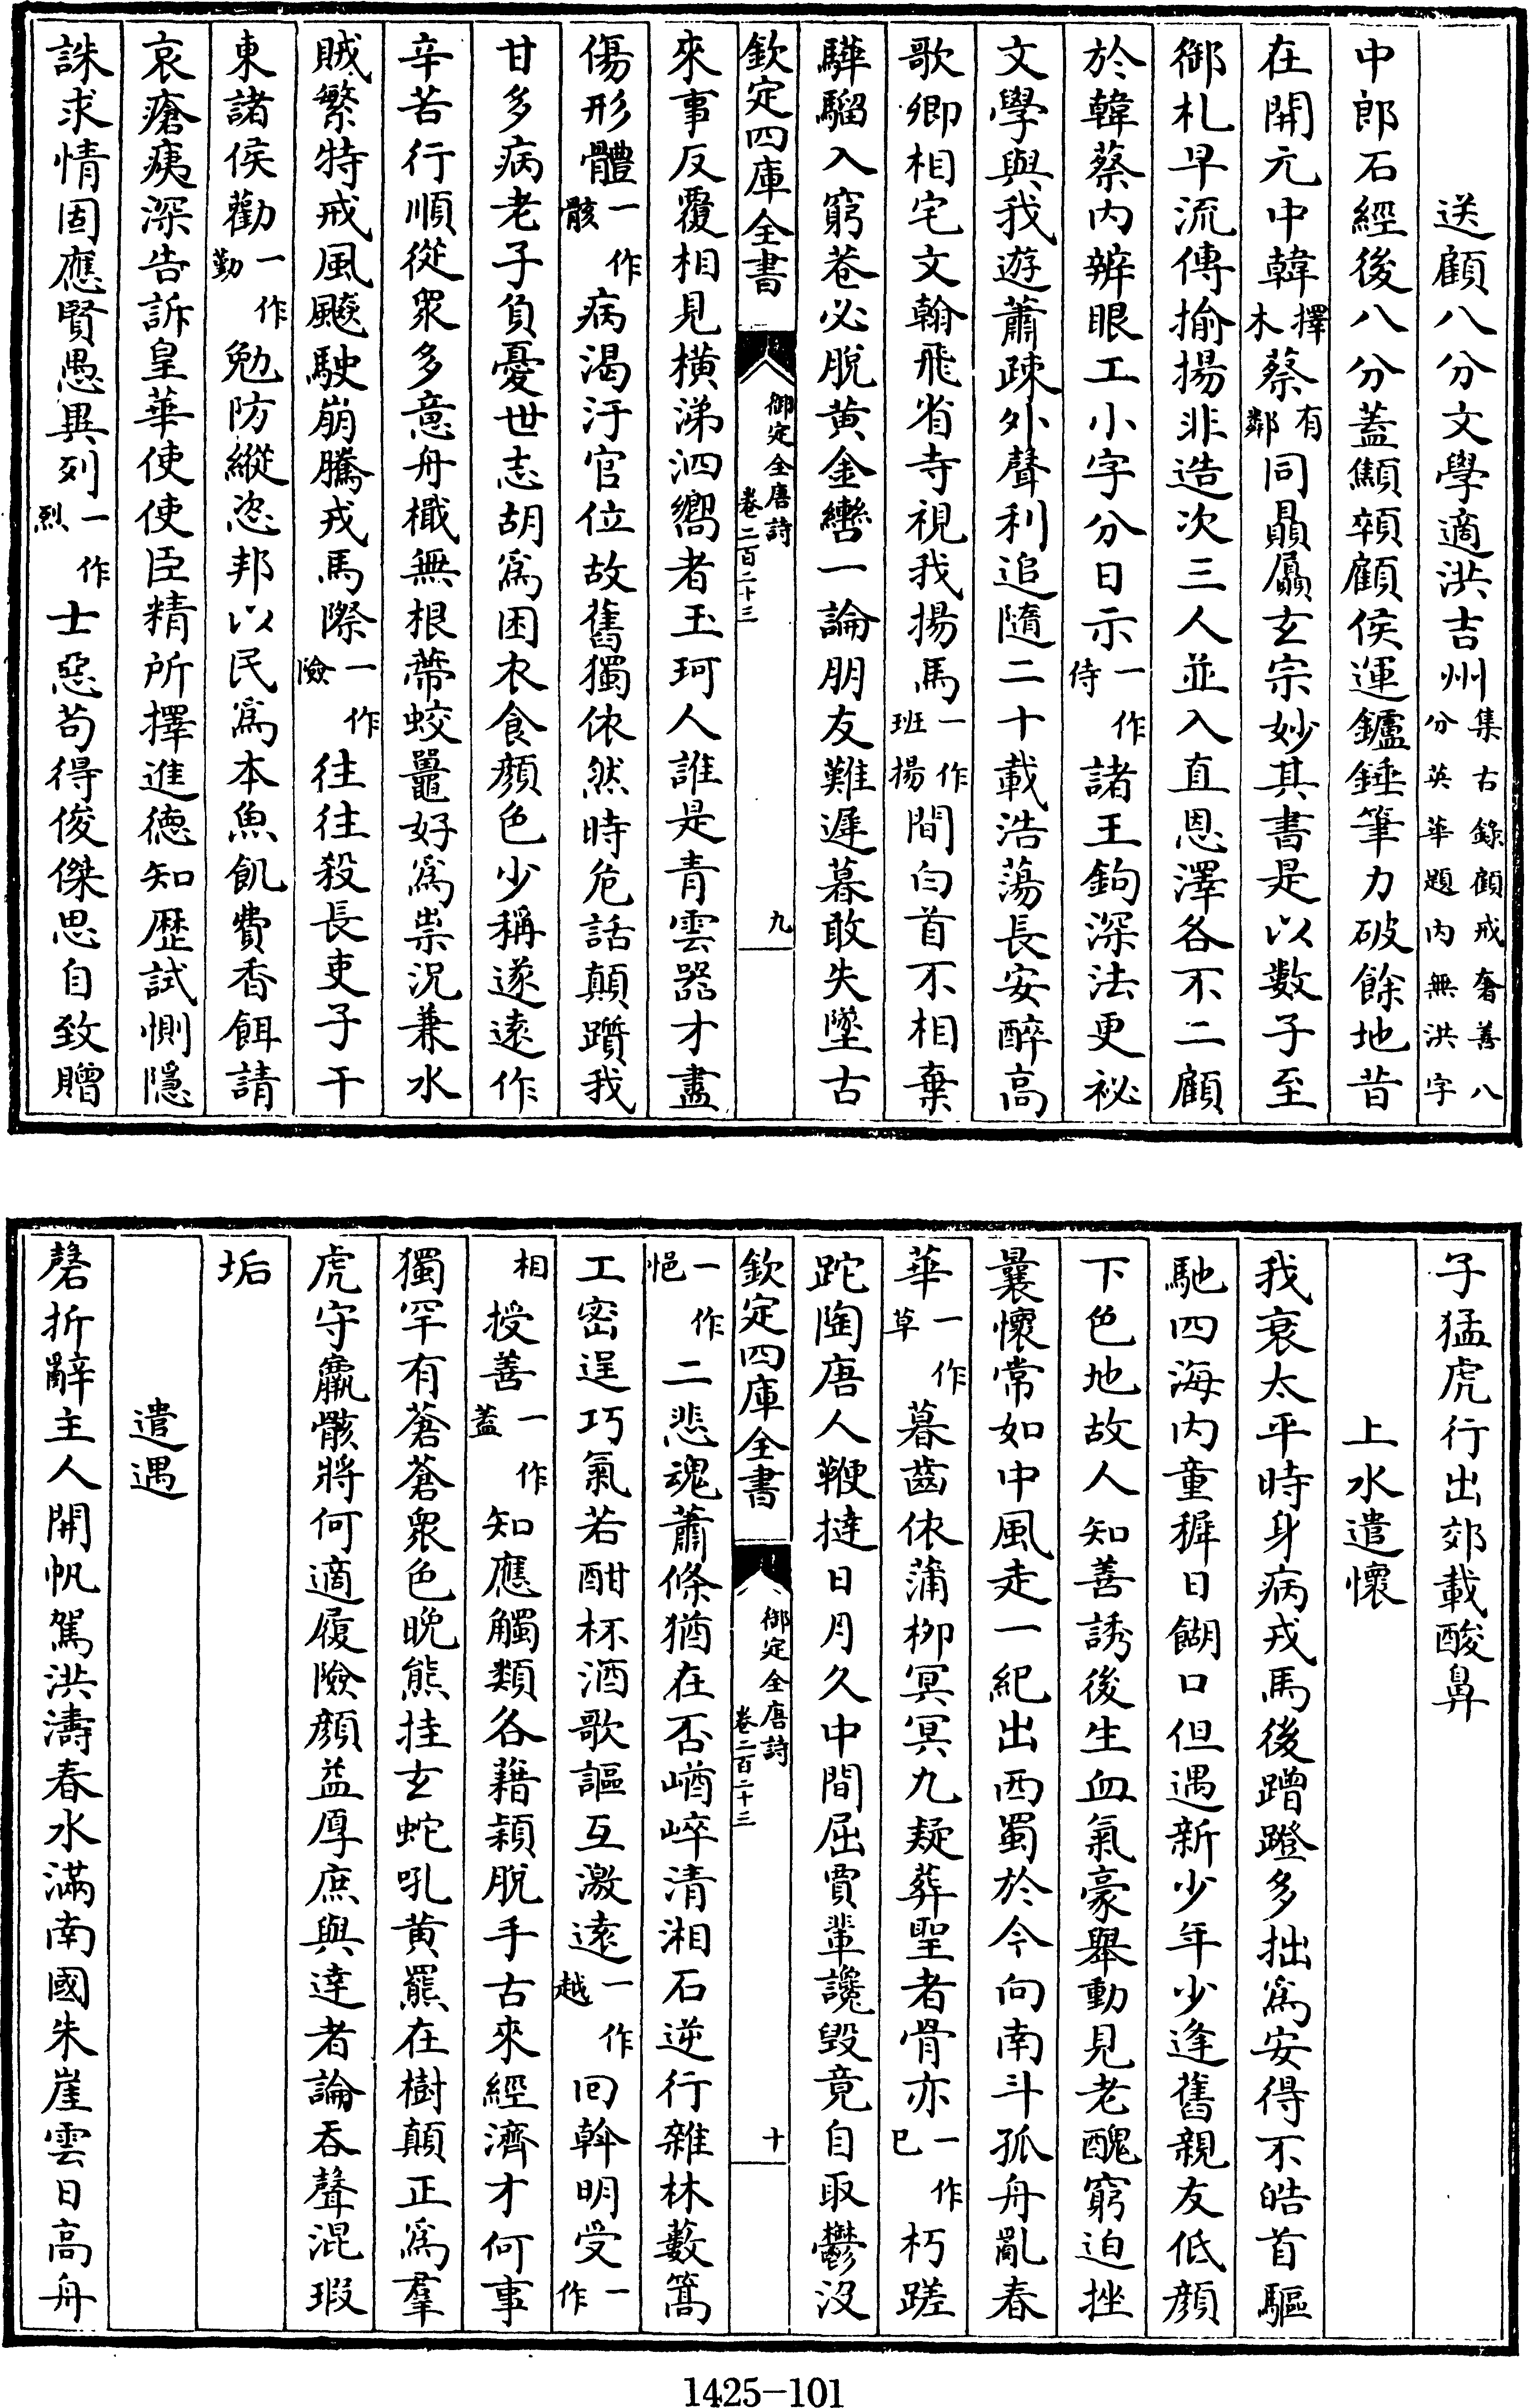 送顧八分文學適洪吉州集古錄顧戒奢善八分英華題内無洪字
中郎石經後八分蓋顦顇顧侯運鑪錘筆力破餘地昔
在開元中韓擇木蔡有鄰同贔屭玄宗妙其書是以數子至
御札早流傳揄揚非造次三人並入直恩澤各不二顧
於韓蔡内辨眼工小字分日示一作侍諸王鉤深法更祕
文學與我遊蕭疎外聲利追隨二十載浩蕩長安醉高
歌卿相宅文翰飛省寺視我揚馬一作班揚間白首不相棄
驊騮入窮巷必脫黄金轡一論朋友難遲暮敢失墜古
欽定四庫全書 御定全唐詩 卷二百二十三 九
來事反覆相見橫涕泗嚮者玉珂人誰是青雲器才盡
傷形體一作骸病渴汙官位故舊獨依然時危話顛躓我
甘多病老子負憂世志胡爲困衣食顔色少稱遂遠作
辛苦行順從衆多意舟檝無根蔕蛟鼉好爲祟況兼水
賊繁特戒風飈駛崩騰戎馬際一作險往往殺長吏子干
東諸侯勸一作勤勉防縱恣邦以民爲本魚飢費香餌請
哀瘡痍深告訴皇華使使臣精所擇進德知歷試惻隱
誅求情固應賢愚異列一作烈士惡苟得俊傑思自致贈
子猛虎行出郊載酸鼻
上水遣懷
我衰太平時身病戎馬後蹭蹬多拙爲安得不皓首驅
馳四海内童稺日餬口但遇新少年少逢舊親友低顔
下色地故人知善誘後生血氣豪舉動見老醜窮迫挫
曩懷常如中風走一紀出西蜀於今向南斗孤舟亂春
華一作草暮齒依蒲柳冥冥九疑葬聖者骨亦一作已朽蹉
跎陶唐人鞭撻日月久中間屈賈輩讒毀竟自取鬱沒
欽定四庫全書 御定全唐詩 卷二百二十三 十
一作悒二悲魂蕭條猶在否崷崒清湘石逆行雜林藪篙
工密逞巧氣若酣杯酒歌謳互激遠一作越回斡明受一作
相授善一作蓋知應觸類各藉穎脫手古來經濟才何事
獨罕有蒼蒼衆色晩熊挂玄蛇吼黄羆在樹顛正爲羣
虎守羸骸將何適履險顔益厚庶與達者論吞聲混瑕
垢
遣遇
磬折辭主人開帆駕洪濤春水滿南國朱崖雲日高舟
1425-101